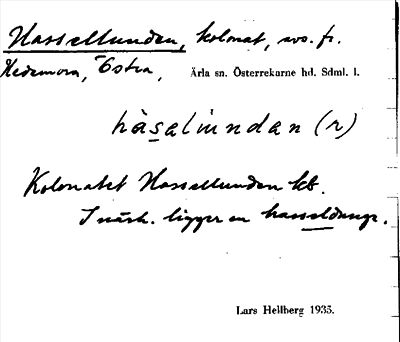 Hassellunden, kolonat, avs. fr.
Hedemora, Östra,
Ärla sn. Österrekarne hd. Sdml. l.
hàsalúndan (r)
Kolonatet Hassellunden kb.
I närh. ligger en hasseldunge.
Lars Hellberg 1935.